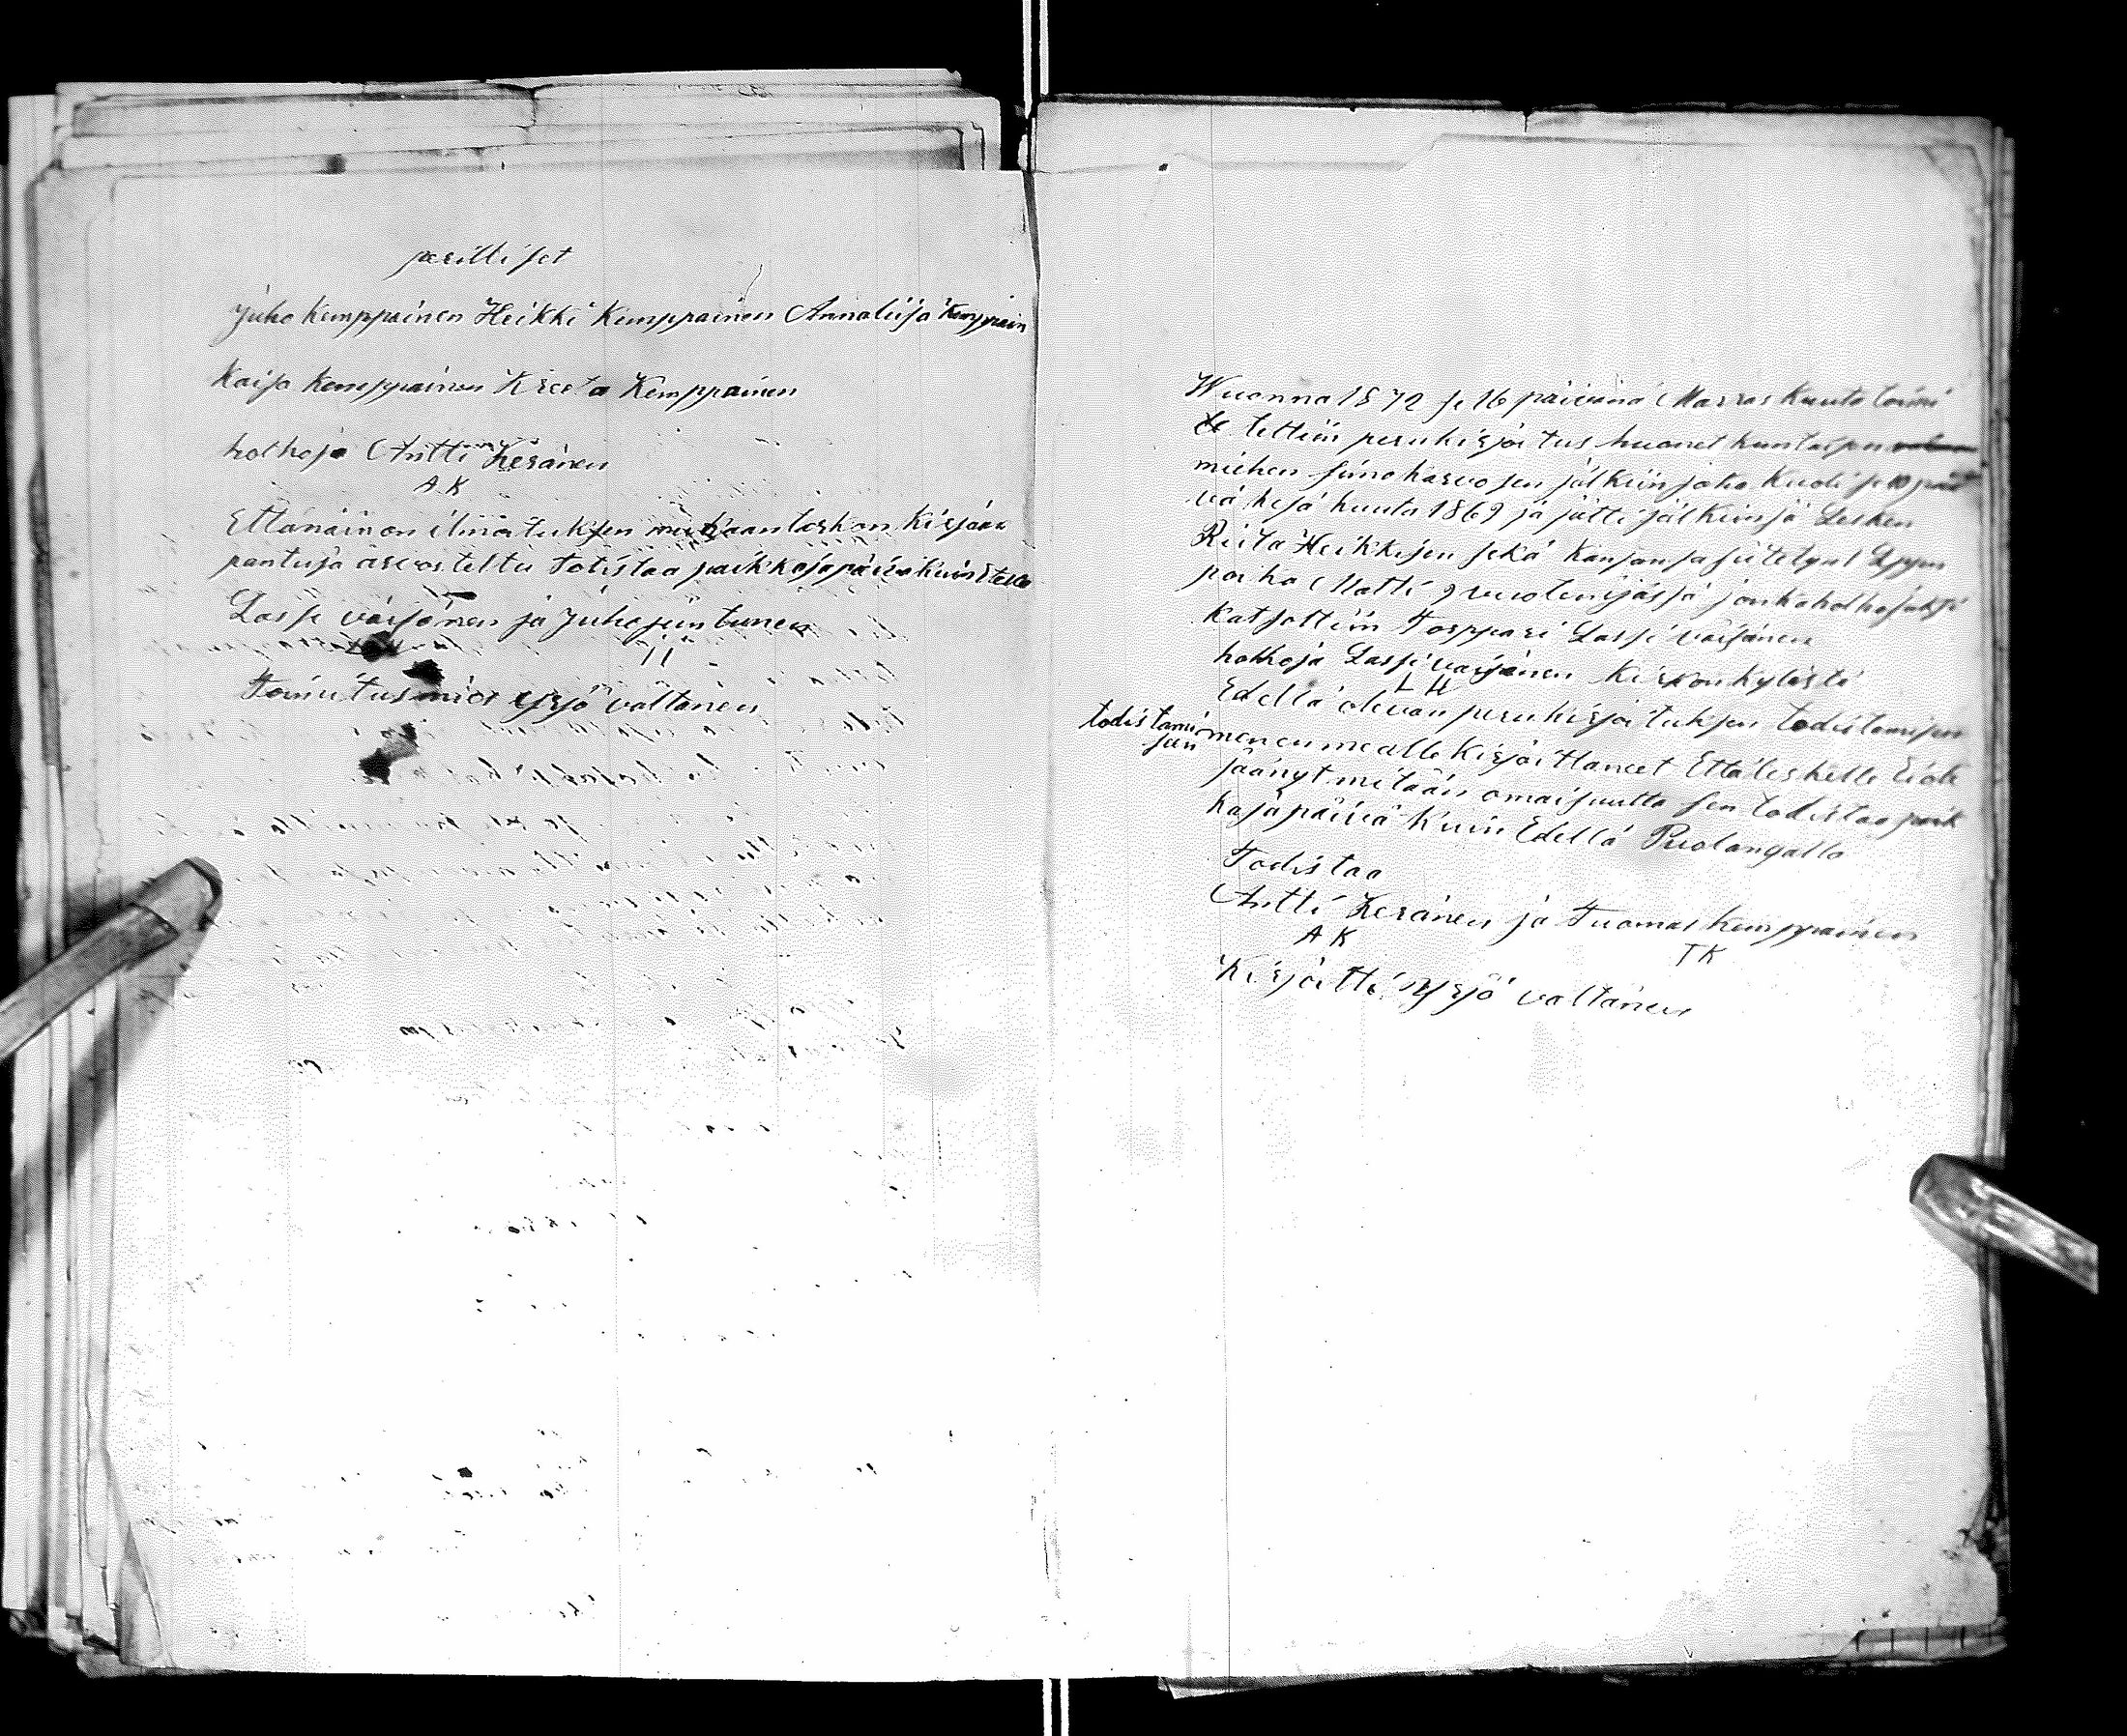 perilliset
Juho Kemppainen Heikki Kemppainen Annaliisa Kemppain
Kaisa Kemppainen Kreeta Kemppainen
holhoja Antti Keränen
A K
Ettänäin on ilmoituksen mukaan tarkon kirjään
pantuja arvosteltu Totistaa paikka ja päivä kuin Etellä
Lassi väisänen ja Juho juntunen
J J
Toimitusmies Yrjö valtanen
Wuonna 1872 se 16 päivänä Marras kuuta toimi
te tettiin perukirjoitus huonet kuntaisen
miehen simo karvosen jälkiin joka kuoli se 10 päi
vä kesä kuuta 1869 ja jätti jälkiinsä Lesken
Riita Heikkisen sekä kansansa siitetynt Lapsen
poika Matti 9 vuoten ijässä jonka holhojaksi
katsottiin Torppari Lassi väisänen
holhoja Lassi väisänen Kirkonkylästä
L H
Edellä olevan perukirjoituksen todistamisen
todistami
sen
menen me alle kirjoittaneet Ettäleskelle Eiole
jäänyt mitään omaisuutta sen todistaa paik
kaja päivä kuin Edellä Puolangalla
Todistaa
Antti Keränen ja Tuomas kemppainen
A K
T K
Kirjoitti Yrjö valtanen